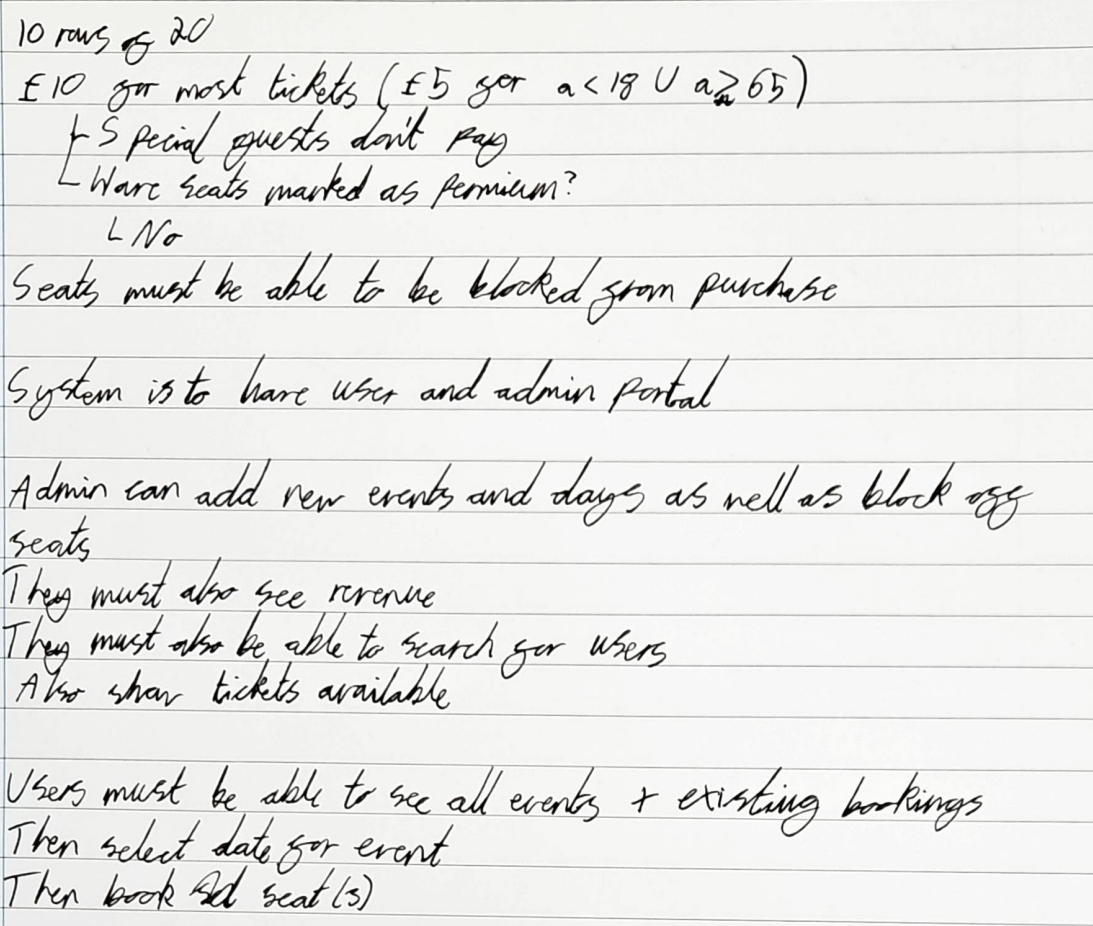 10 rows of 20
£10 for most tickets (£5 for a<18 U a≥65)
Special guests don't pay
Ware seats marked as Permieum?
No
Seats must be able to be blocked from purchase
System is to have user and admin portal
Admin can add new events and days as well as block off
seats
They must also see revenue
They must also be able to search for users
Also show tickets available
Users must be able to see all events + existing bookings
Then select date for event
Then book seat(s)